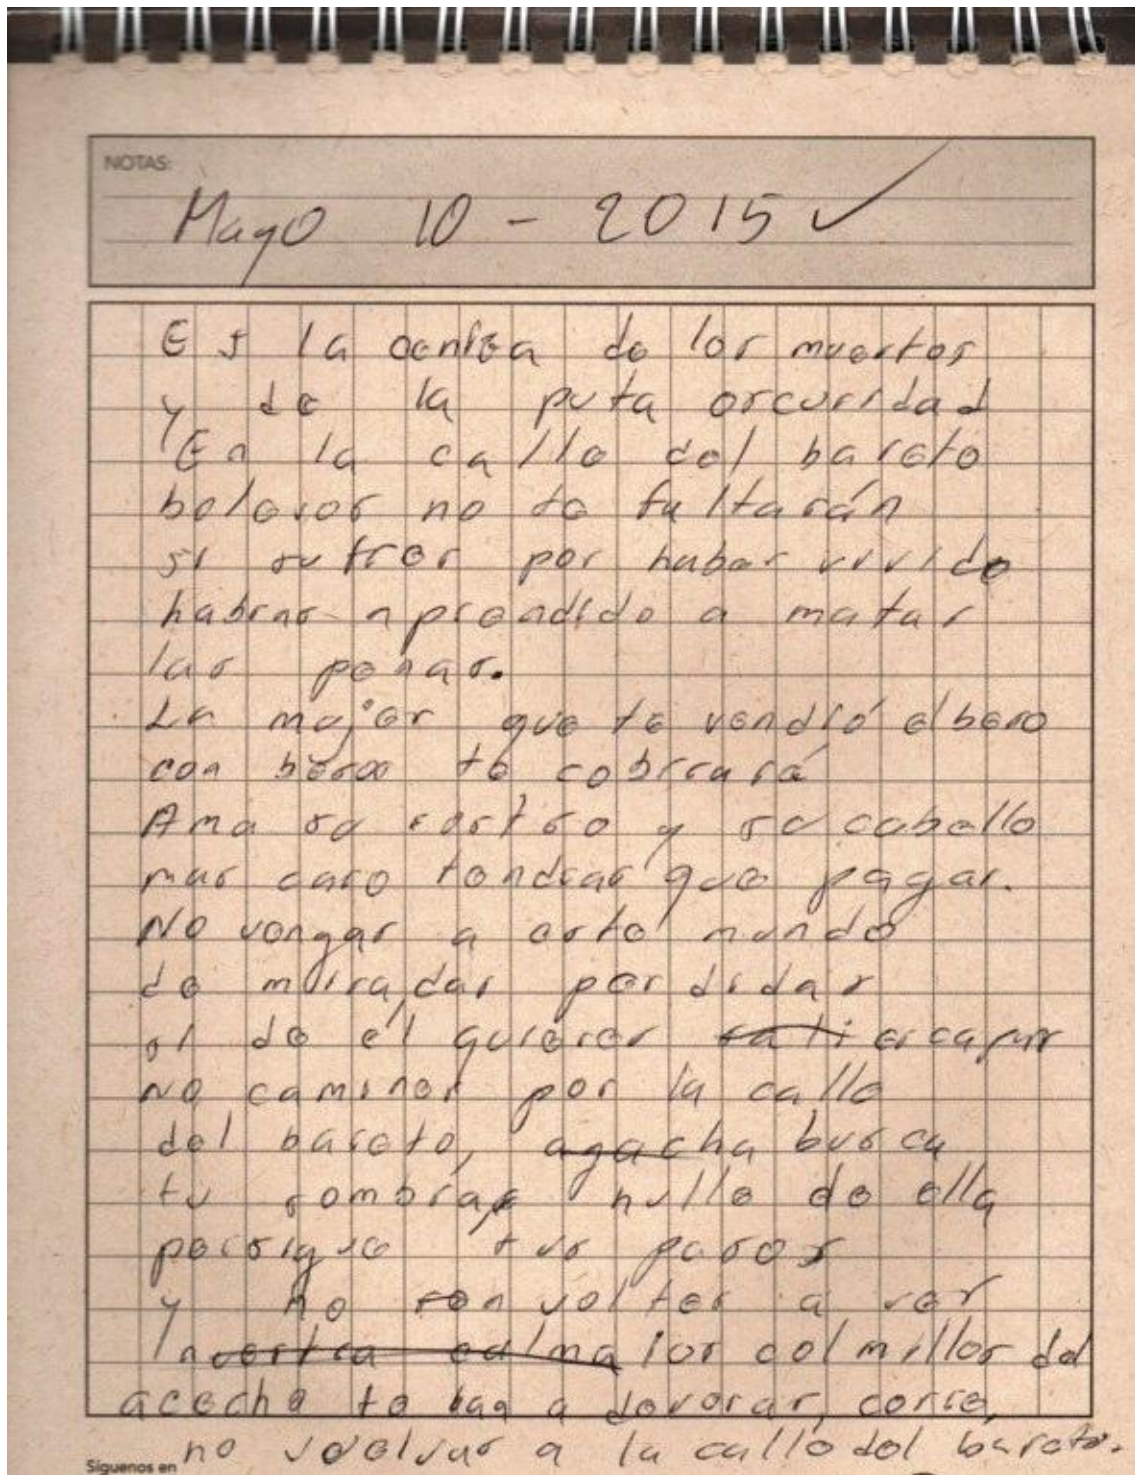 NOTAS:
Mayo 10 - 2015 ✓
Es la ceniza de los muertos
y de la puta oscuridad
En la calle del barato
bolesos no te faltarán
si sufres por haber vivido
habras aprendido a matar
las penas.
La mujer que te vendió el beso
con besos te cobrrará
Ama su rostro y su cabello
mas caro tendras que pagar.
No vengas a este mundo
de miradas perdidas
si de él quieres escapar
no camines por la calle
del barato, agacha busca
tu sombra, hulle de ella
persigue tus pasos
y no voltes a ver
los colmillos del
acecho te van a devorar, corre,
no vuelvas a la calle del barato.
Síguenos en